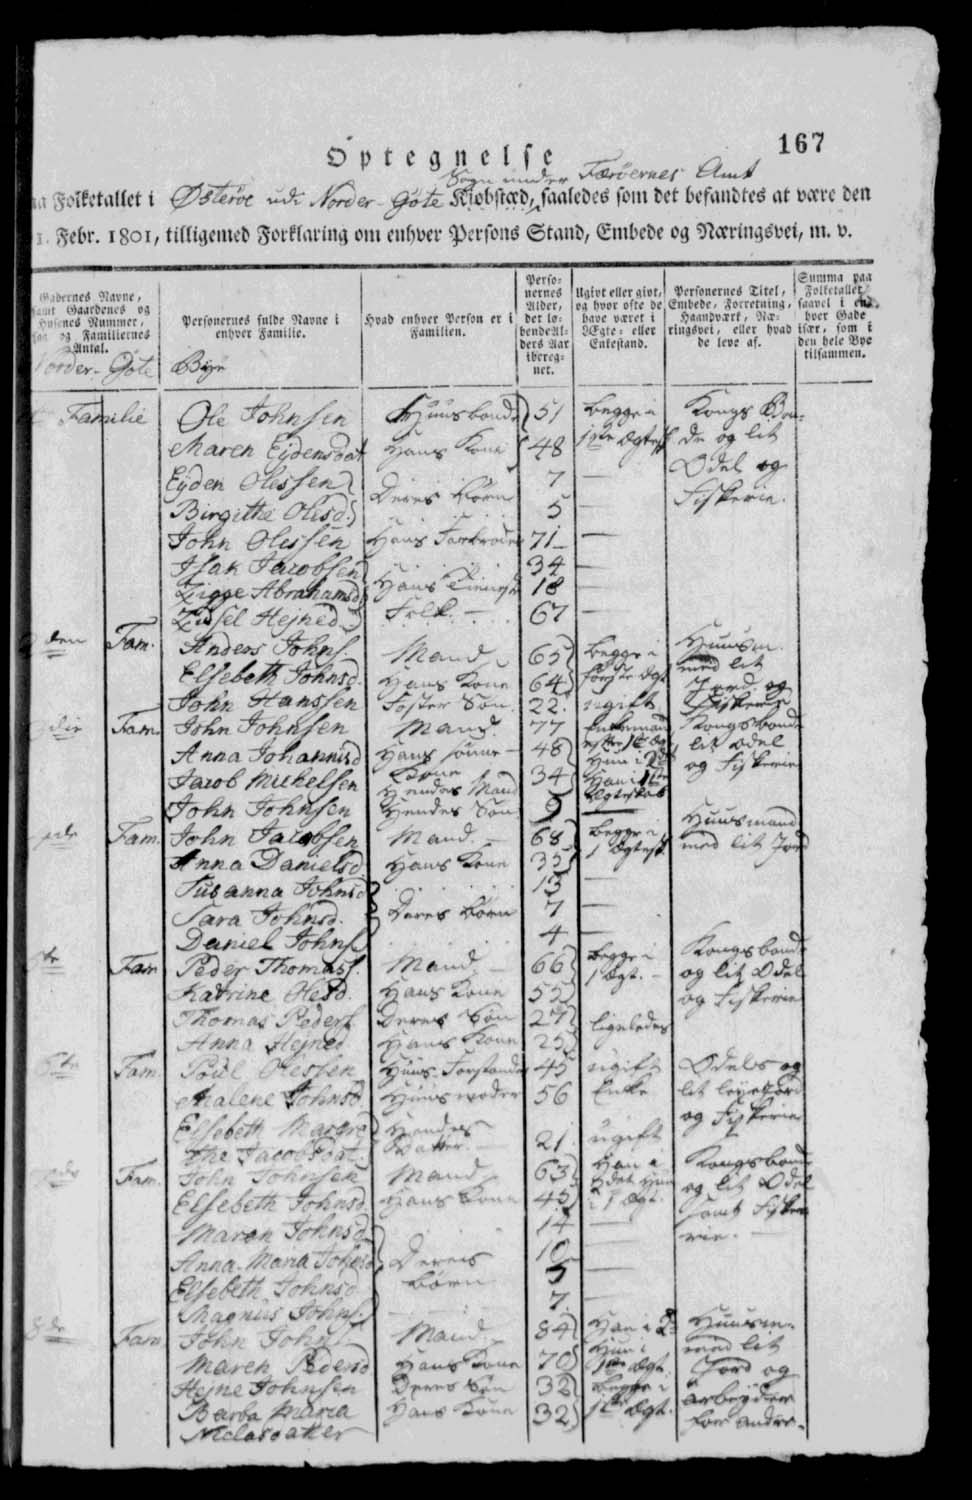 167
Optegnelse
Sogn under Færøernes Amt
Folketallet i Østerøe udi Norder-Gøte Kjøbstæd, saaledes som det befandtes at være den
1. Febr. 1801, tilligemed Forklaring om enhver Persons Stand, Embede og Næringsvei, m. v.
Gadernes Navne, samt Gaardenes og Husenes Nummer, og Familiernes Antal.
Personernes fulde Navne i enhver Familie.
Hvad enhver Person er i Familien.
Personernes Alder, det løbende Alders Aar iberegnet.
Ugivt eller givt, og hvor ofte de have været i Ægte- eller Enkestand.
Personernes Titel, Embede, Forretning, Haandværk, Næringsvei, eller hvad de leve af.
Summa paa Folketallet saavel i enhver Gade især, som i den hele Bye tilsammen.
Norder-Gøte Bÿe
Familie Ole Johnsen Huusbonde 51 begge i Kongs Bon-
Maren Eÿdensdat Hans Kone 48 1ste Ægtesk de og lit
Eÿden Olessen 7 — Odel og
Deres børn
Birgithe Olesd. 5 — Fiskerie.
John Olessen Hans Farbroder 71 —
Isak Jacobsen 34 —
Zigge Abrahamsd Hans Tieneste 18 —
Zidsel Hejned Folk 67 —
2den Fam. Anders Johns. Mand 65 begge i Huusm.
Elsebeth Johnsd. Hans Kone 64 første Ægt med lit
John Hanssen Foster Søn 22. ugift Jord og Fiskerie
3die Fam. John Johnsen Mand 77 Enkemand Kongsbonde
Anna Johannisd Hans Sønne Kone 48 Hun i 2det lit odel
Jacob Michelsen Hendes Mand 34 Han i 1ste Ægteskab og Fiskerie
John Johnsen Hendes Søn 9 —
Fam. John Jacobsen Mand 68 begge i Huusmand
Anna Danielsd Hans Kone 35 1 Ægtesk med lit Jord
Susanna Johnsd 13 —
Sara Johnsd. Deres børn 7 —
Daniel Johns. 4 —
Fam Peder Thomass. Mand 66 begge i Kongsbonde
Katrine Olesd. Hans Kone 55 1 Ægt. og lit Odel
Thomas Peders Deres Søn 27 ligeledes og Fiskerie
Anna Hejned Hans Kone 25
6te Fam. Poul Olessen Huus Forstander 45 ugift Odels og
Malene Johnsd Huusmoder 56 Enke lit leyejord
Elsebeth Margre Hendes og Fiskerie
the Jacobsdat. Datter 21 ugift
Fam. John Johnsen Mand 63 Han i Kongsbonde
Elsebeth Johnsd Hans Kone 45 2det Hun i 1 Ægt. og lit Odel
Maren Johnsd 14 — samt Fiske-
Anna Maria Johnsd Deres 10 — rie.
Elsebeth Johnsd børn —
Magnus Johns. 7 —
8de Fam John Johns Mand 84 Han i 2 Huusm.
Maren Pedersd Hans Kone 70 Hun i 1ste Ægt med lit
Hejne Johnsen Deres Søn 32 begge i Jord og
Barba Maria Hans Kone 32 1ste Ægt. arbejder
Niclasdatter for andre.